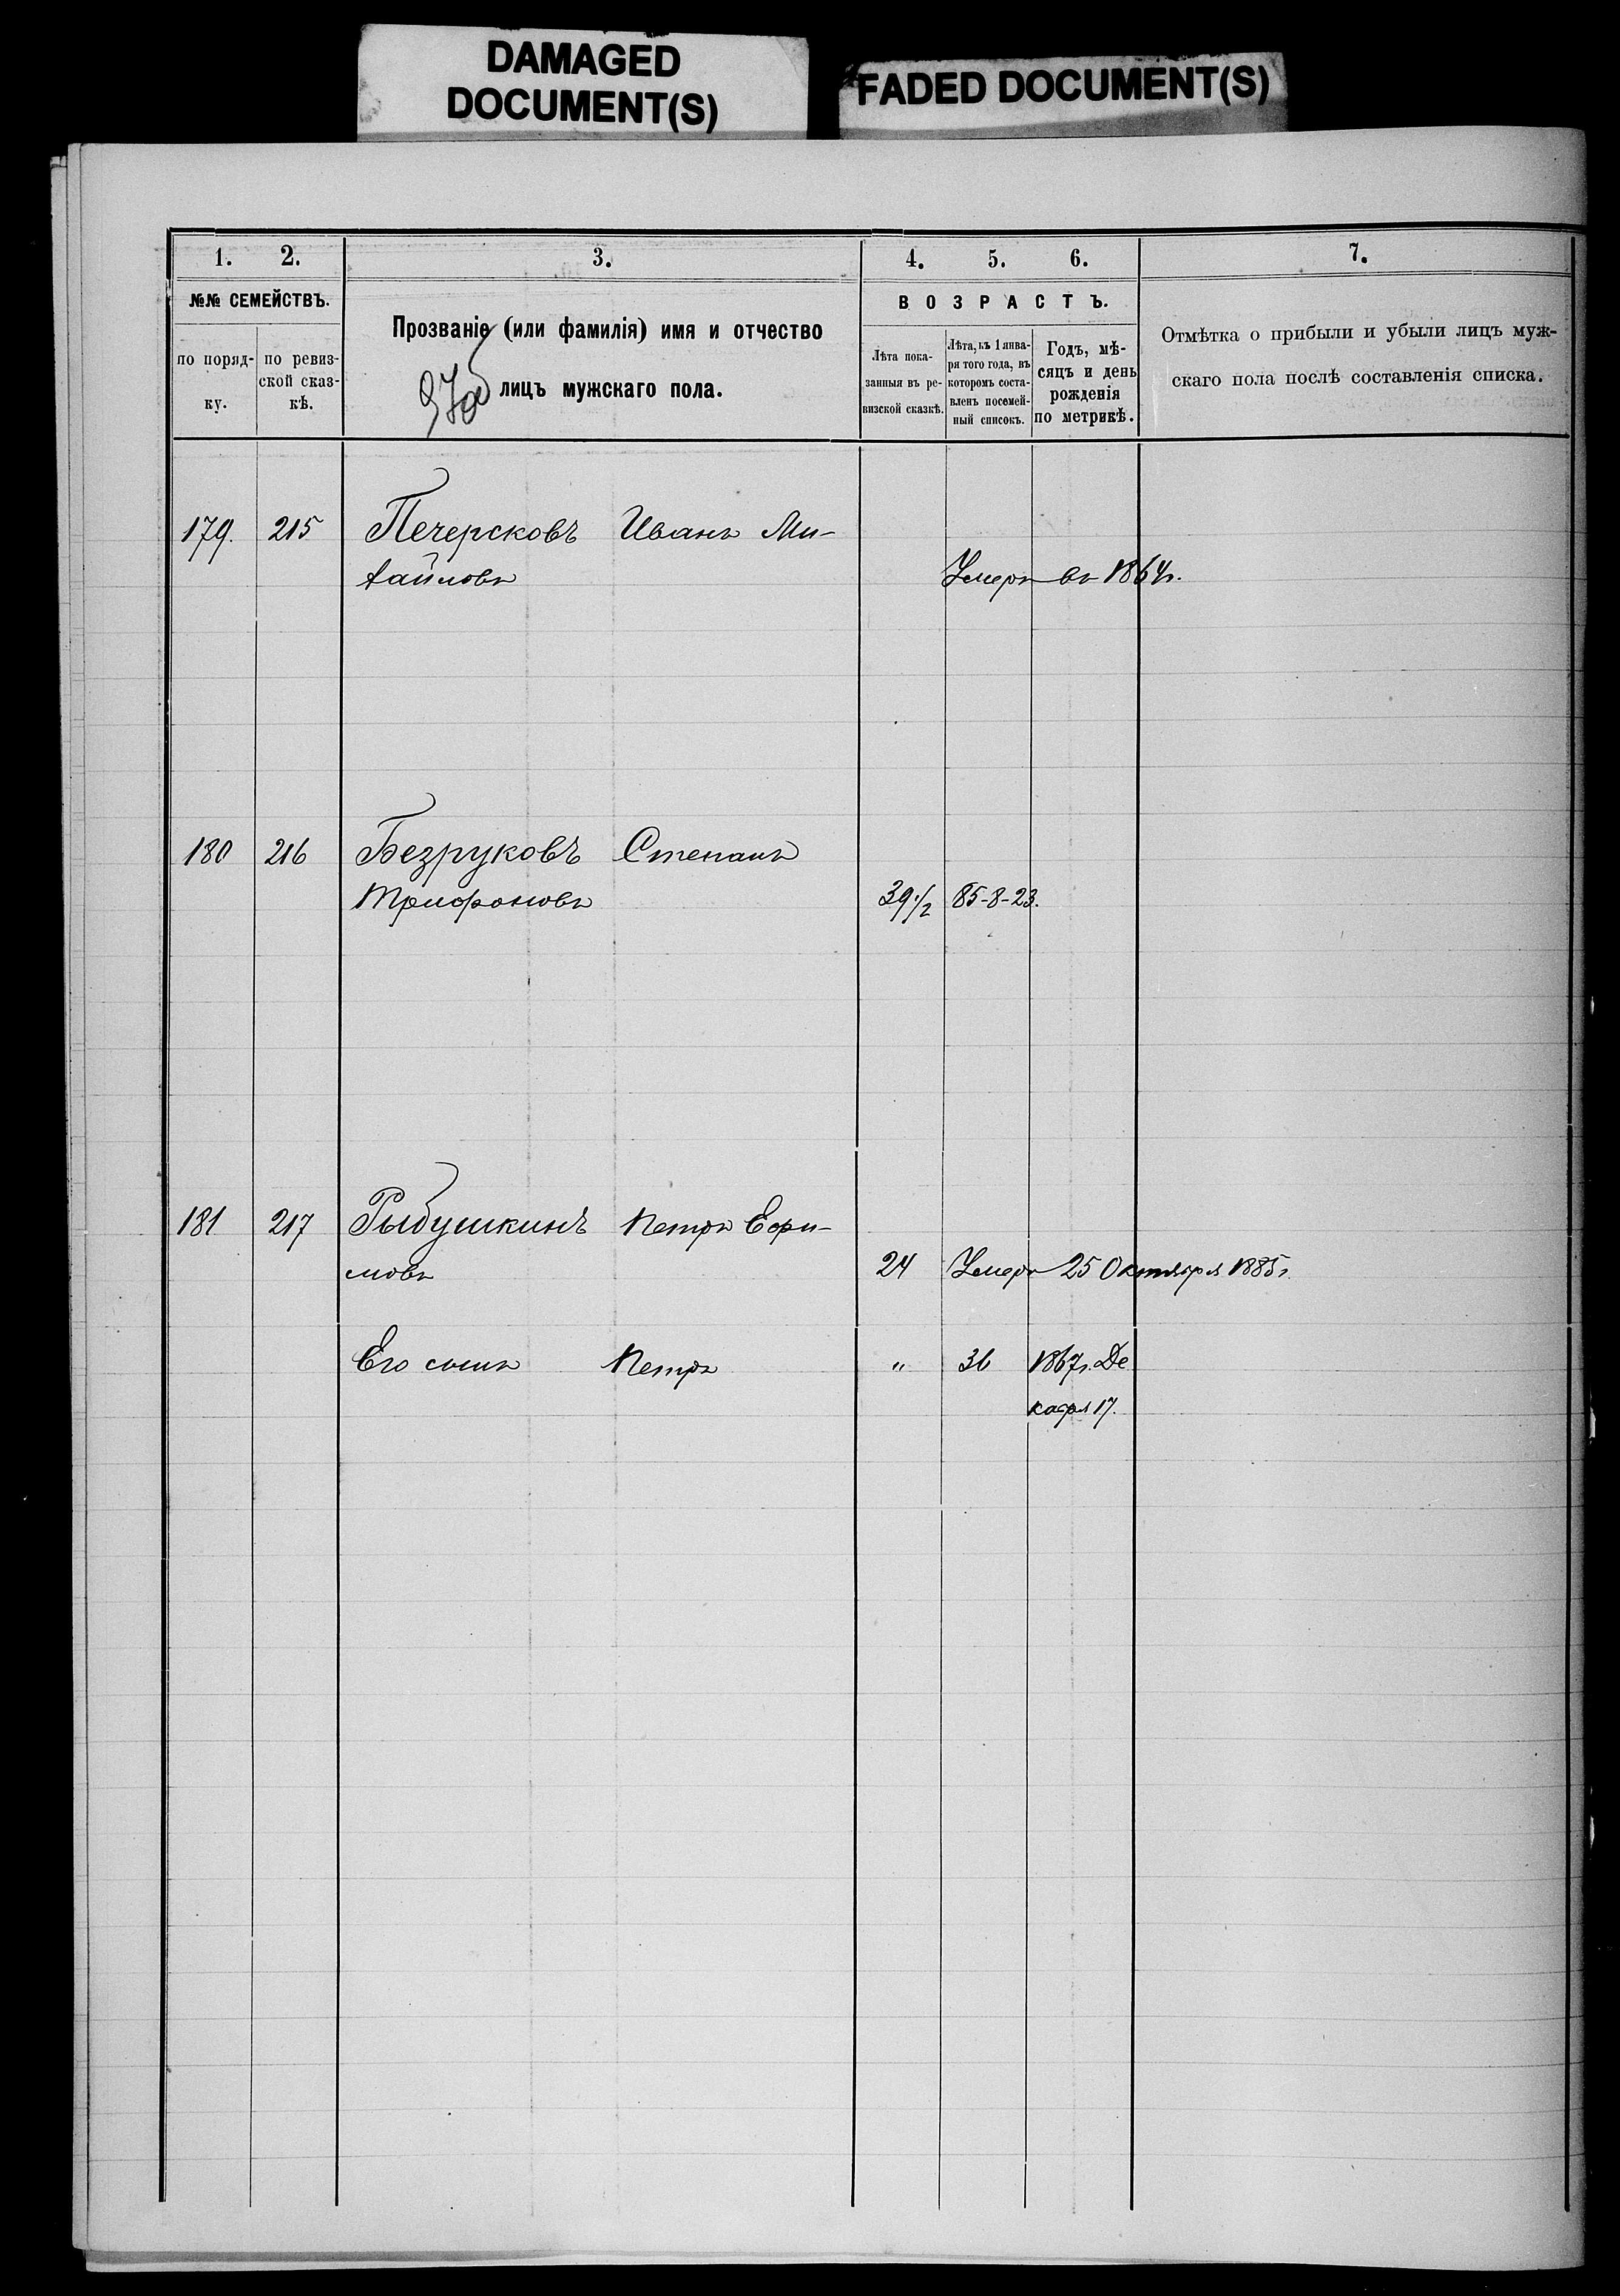 DAMAGED
DOCUMENT(S)
FADED DOCUMENT(S)
1. 2. 3. 4. 5. 6. 7.
№№ СЕМЕЙСТВЪ.
по поряд-
ку.
по ревиз-
ской сказ-
кѣ.
Прозваніе (или фамилія) имя и отчество
лицъ мужскаго пола.
ВОЗРАСТЪ.
Лѣта пока-
занныя въ ре-
визской сказкѣ.
Лѣта, къ 1 янва-
ря того года, въ
которомъ соста-
вленъ посемей-
ный списокъ.
Годъ, мѣ-
сяцъ и день
рожденія
по метрикѣ.
Отмѣтка о прибыли и убыли лицъ муж-
скаго пола послѣ составленія списка.
179. 215 Печерсковъ Иванъ Ми-
хайловъ Умеръ въ 1864г.
180 216 Безруковъ Степанъ
Трифоновъ 39 1/2 85-8-23.
181 217 Рыбушкинъ Петръ Ефи-
мовъ 24 Умеръ 25 Октября 1885г.
Его сынъ Петръ " 36 1867г. Де
кабря 17.